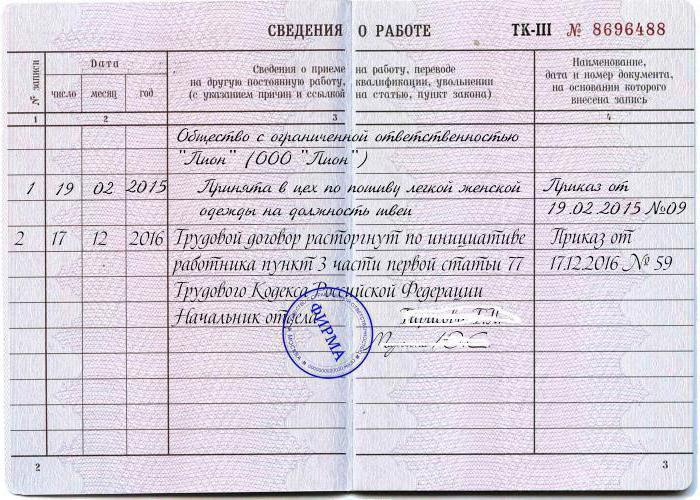 СВЕДЕНИЯ О РАБОТЕ ТК-III № 8696488
№ записи
Дата
число
месяц
год
Сведения о приеме на работу, переводе
на другую постоянную работу, квалификации, увольнении
(с указанием причин и ссылкой на статью, пункт закона)
Наименование,
дата и номер документа,
на основании которого
внесена запись
1 2 3 4
Общество с ограниченной ответственностью
"Пион" (ООО "Пион")
1 19 02 2015 Принята в цех по пошиву легкой женской Приказ от
одежды на должность швеи 19.02.2015 №09
2 17 12 2016 Трудовой договор расторгнут по инициативе Приказ от
работника пункт 3 части первой статьи 77 17.12.2016 № 59
Трудового Кодекса Российской Федерации
Начальник отдела
ФИРМА
МОСКВА
2 3